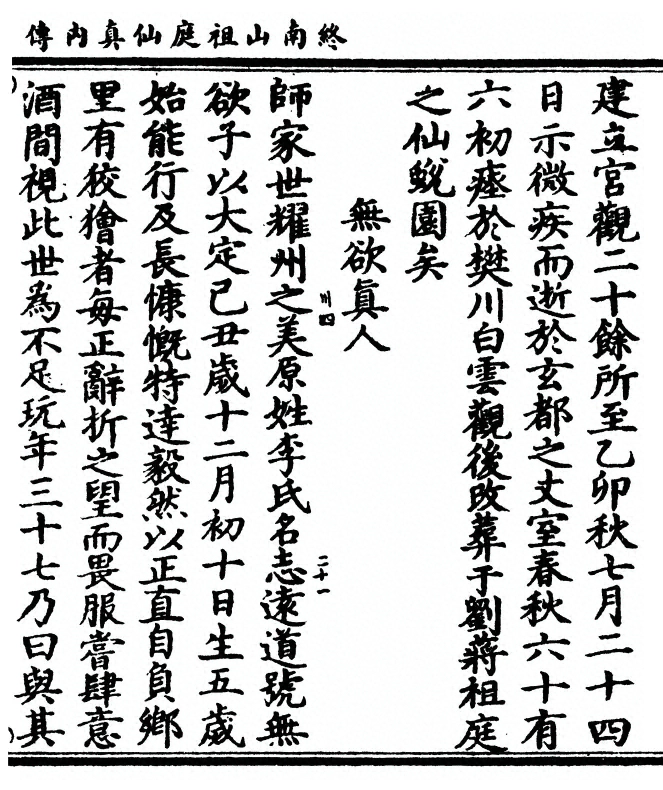 終南山祖庭仙真内傳
建立宮觀二十餘所至乙卯秋七月二十四
日示微疾而逝於玄都之丈室春秋六十有
六初瘞於樊川白雲觀後改葬于劉蔣祖庭
之仙蛻園矣
無欲真人
川四
師家世耀州之美原姓李氏名志遠道號無
二十一
欲子以大定己丑歲十二月初十日生五歲
始能行及長慷慨特達毅然以正直自負鄉
里有狡獪者每正辭折之望而畏服當肆意
酒間視此世為不足玩年三十七乃曰與其